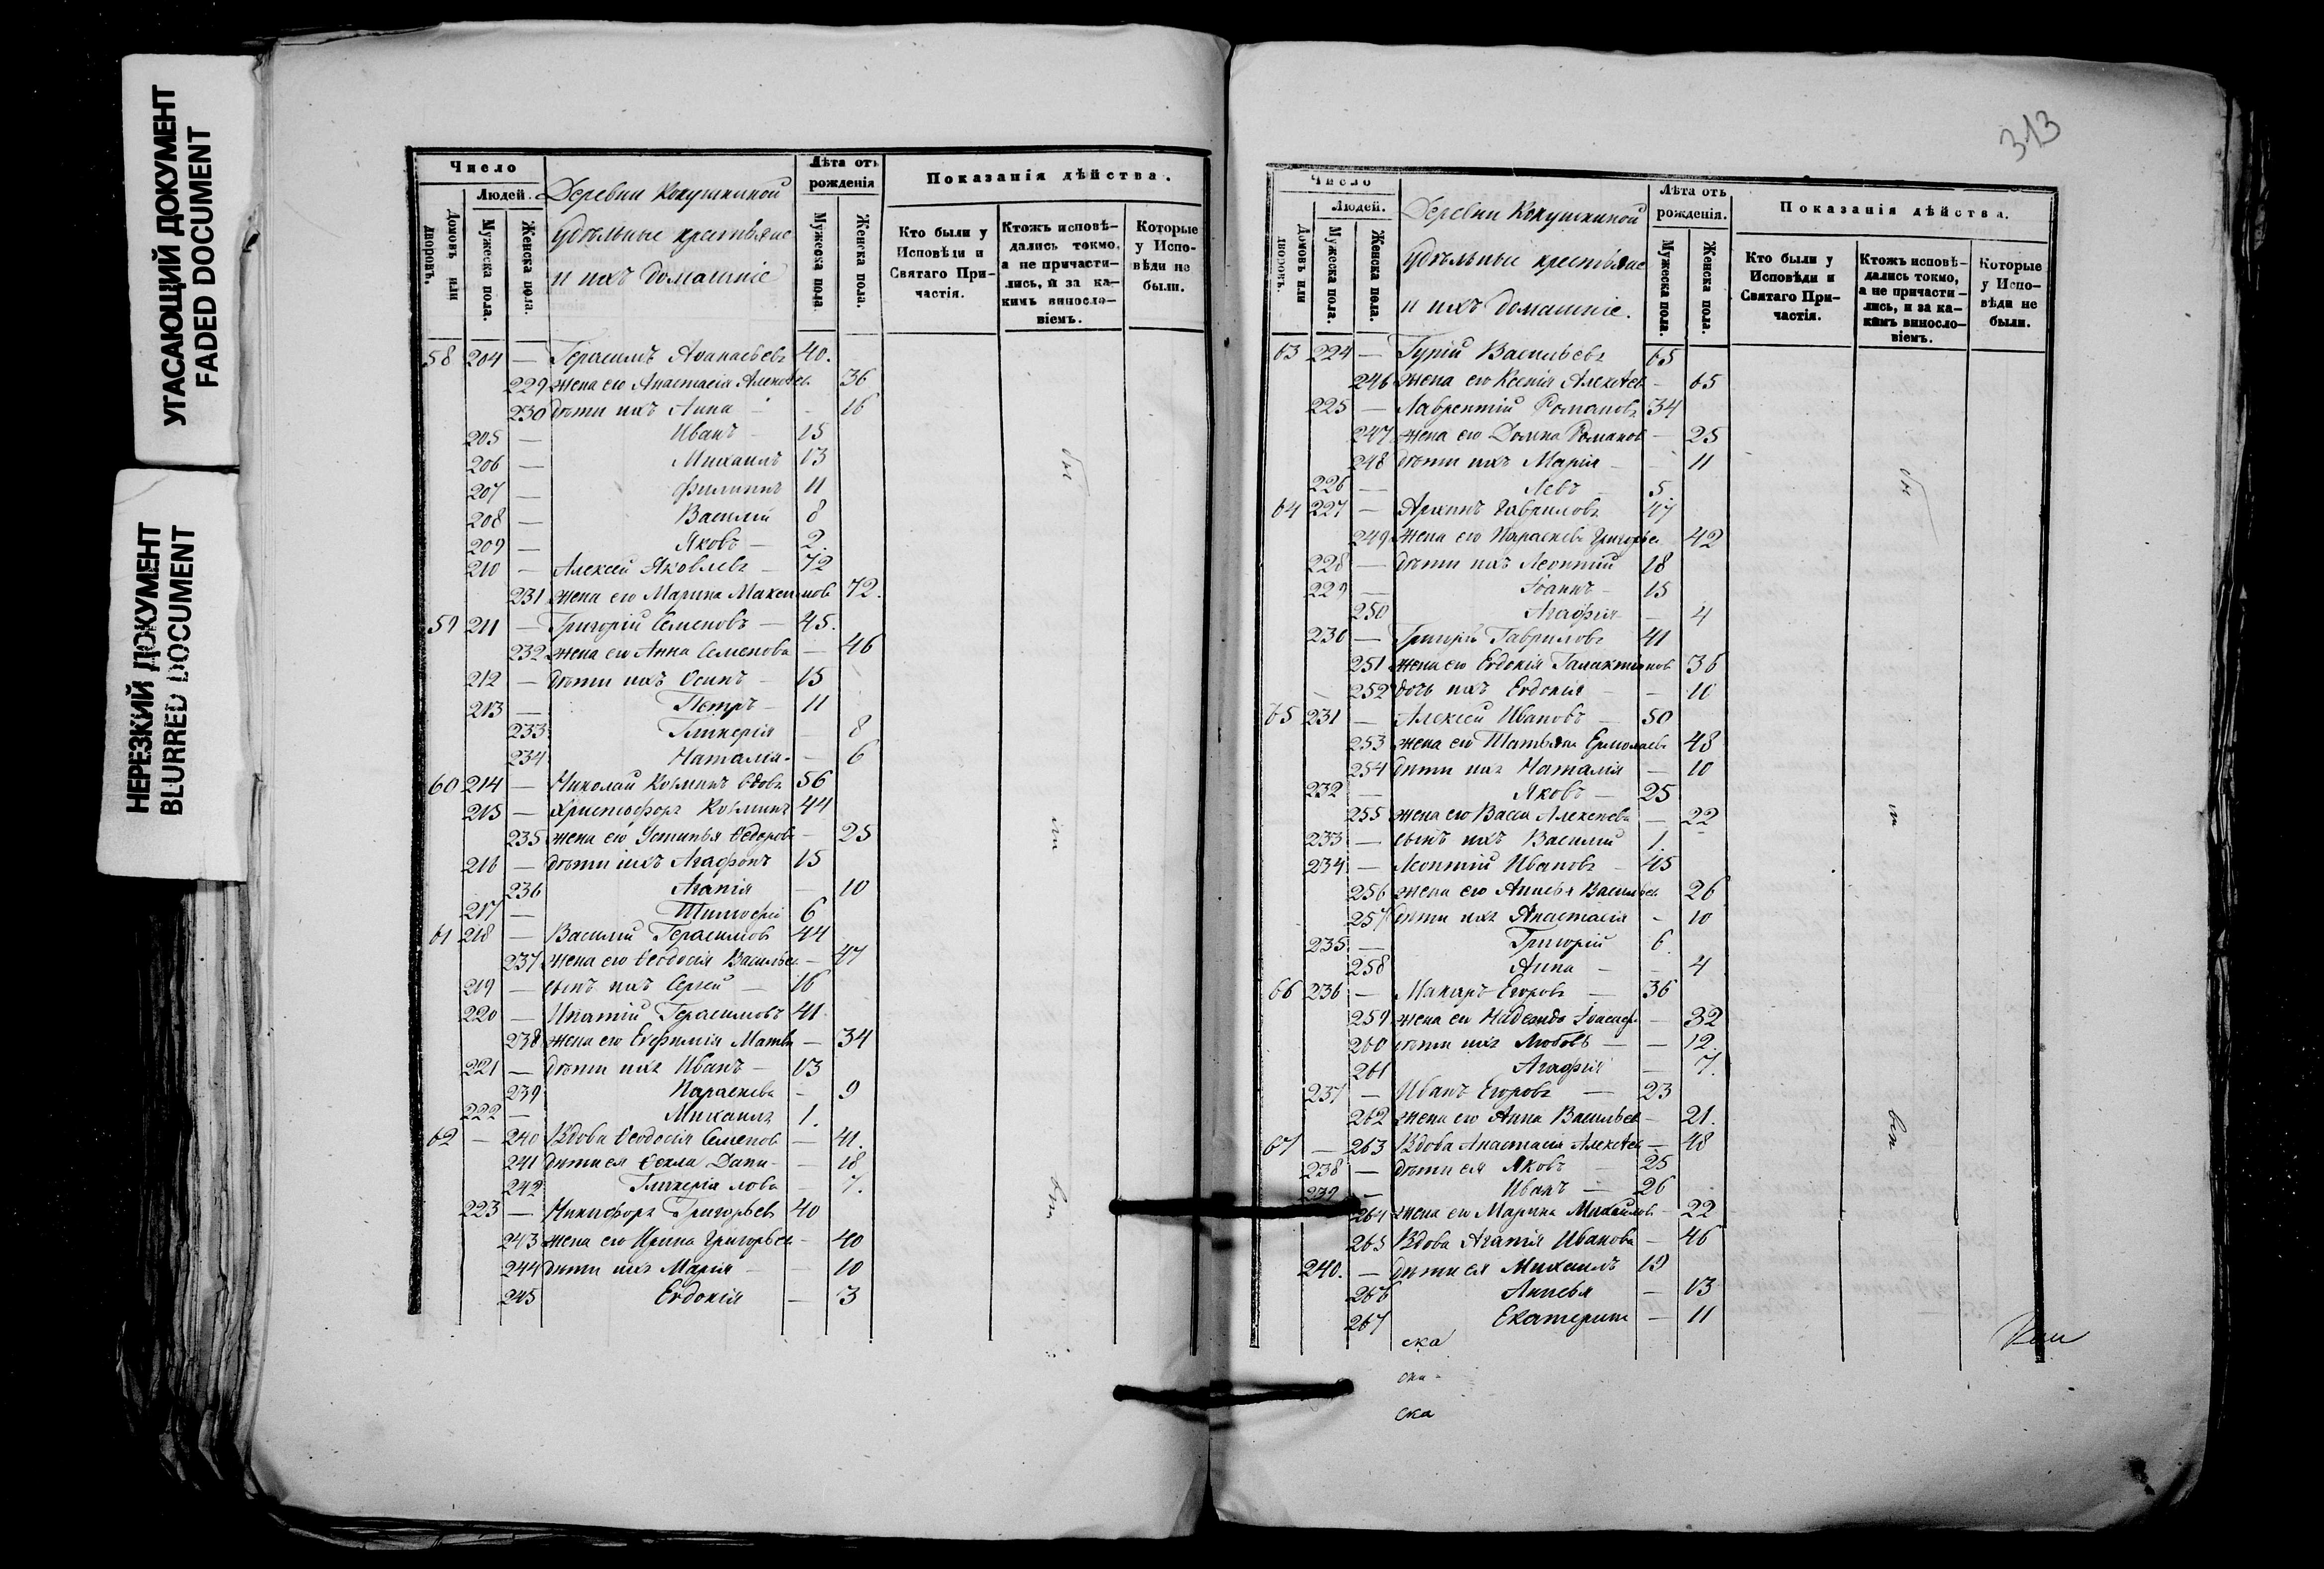 УГАСАЮЩИЙ ДОКУМЕНТ
FADED DOCUMENT
НЕРЕЗКИЙ ДОКУМЕНТ
BLURRED DOCUMENT
Число
Людей.
Домовъ или дворовъ.
Мужеска пола.
Женска пола.
Деревни Кокушкиной
удѣльные крестьяне
и ихъ домашніе
Лѣта отъ рожденія
Мужеска пола
Женска пола.
Показанія дѣйства.
Кто были у Исповѣди и Святаго Причастія.
Ктожъ исповѣдались токмо, а не причастились, и за какимъ винословіемъ.
Которые у Исповѣди не были.
58 204 — Герасимъ Аѳанасьевъ 40.
229 жена его Анастасія Алексѣев 36
230 дѣти ихъ Анна - 16
205 — Иванъ - 15
206 — Михаилъ 13
207 — Филиппъ 11
208 — Василій 8
209 — Яковъ — 2.
210 — Алексей Яковлевъ - 72
231 жена его Марина Максимов 72.
59 211 — Григорій Семеновъ — 45.
232 жена его Анна Семенова — 46
212 — дѣти ихъ Осипъ - 15
213 — Петръ - 11
233 Гликерія — 8
234 Наталія - — 6
60 214 — Николай Козминъ вдовъ 56
215 — Христофоръ Козминъ 44
235 жена его Устинья Ѳедоров — 25
216 — дѣти ихъ Агафонъ 15
236 Агапія — 10
217 — Тимофей 6
61 218 — Василій Герасимов 44
237 жена его Ѳеодосія Васильев — 47
219 — сынъ ихъ Сергей — 16
220 — Игнатій Герасимовъ 41
238 жена его Евфимія Матв — 34
221 — дѣти ихъ Иванъ — 13
239 Параскева - 9
222 — Михаилъ 1.
62 — 240 Вдова Ѳеодосія Семенов — 41.
241 дѣти ея Ѳекла Дани- — 18
242 Гликерія лова — 7.
223 — Никифоръ Григорьев 40
243 жена его Ирина Григорьев - 40
244 дѣти ихъ Марія — — 10
245 Евдокія — 3
313
Число
Людей.
Домовъ или дворовъ.
Мужеска пола.
Женска пола.
Деревни Кокушкиной
удѣльные крестьяне
и ихъ домашніе.
Лѣта отъ рожденія.
Мужеска пола.
Женска пола.
Показанія дѣйства.
Кто были у Исповѣди и Святаго Причастія.
Ктожъ исповѣдались токмо, а не причастились, и за какимъ винословіемъ.
Которые у Исповѣди не были.
63 224 — Гурій Васильевъ 65
246 жена его Ксенія Алексѣев - 65
225 — Лаврентій Романовъ 34
247 жена его Домна Романов - 25
248 дѣти ихъ Марія - 11
226 — Левъ 5.
64 227 — Архипъ Гавриловъ 47
249 жена его Параскева Григорьев 42
228 — дѣти ихъ Леонтій 18
229 — Іоаннъ - 15
250 Агафія - — 4
230 — Григорій Гавриловъ 41
251 жена его Евдокія Галактіонов 36
252 дочь ихъ Евдокія — - 10
65 231 — Алексей Ивановъ — 50
253 жена его Татьяна Ермолаев 48
254 дѣти ихъ Наталія — 10
232 — Яковъ — 25
255 жена его Васса Алексеева — 22
233 — сынъ ихъ Василій 1.
234 — Леонтій Ивановъ - 45
256 жена его Анисья Васильев 26
257 дѣти ихъ Анастасія - 10
235 — Григорій 6
258 Анна — — 4
66 236 — Макаръ Егоровъ — 36
259 жена его Надежда Іоасаф — 32
260 дѣти ихъ Любовь — — 12.
261 Агафія — 7.
237 — Иванъ Егоровъ — 23
262 жена его Анна Васильев — 21.
67 — 263 Вдова Анастасія Алексѣев — 48
238 — дѣти ея Яковъ — 25
239 — Иванъ — 26
264 жена его Марина Михайлов - 22
265 Вдова Агапія Иванова — 46
240. — дѣти ея Михаилъ 19
266 Анисья — 13
267 Екатерина — 11
ска
ска